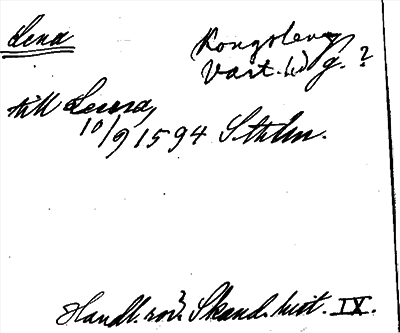 Lena
Kongslena
Vart. hd g. ?
till Lena,
10/9 1594 Sthlm.
Handl. rör. Skand. hist. IX.